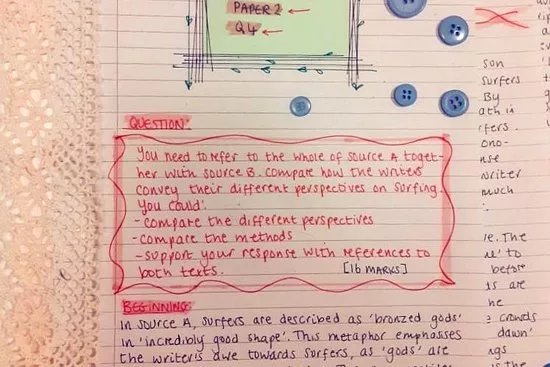 PAPER 2
Q4
QUESTION:
You need to refer to the whole of source A toget-
her with source B. compare how the writers
convey their different perspectives on surfing.
You could:
- compare the different perspectives
- compare the methods
- support your response with references to
both texts. [16 MARKS]
BEGINNING:
In source A, surfers are described as 'bronzed gods'
in 'incredibly good shape'. This metaphor emphasises
the writer's awe towards surfers, as 'gods' are
son
surfers
By
ath is
rfers.
ono-
nse
writer
much
:
ie. The
u' to
before
is are
he
e crowds
dawn'
ngs
is the